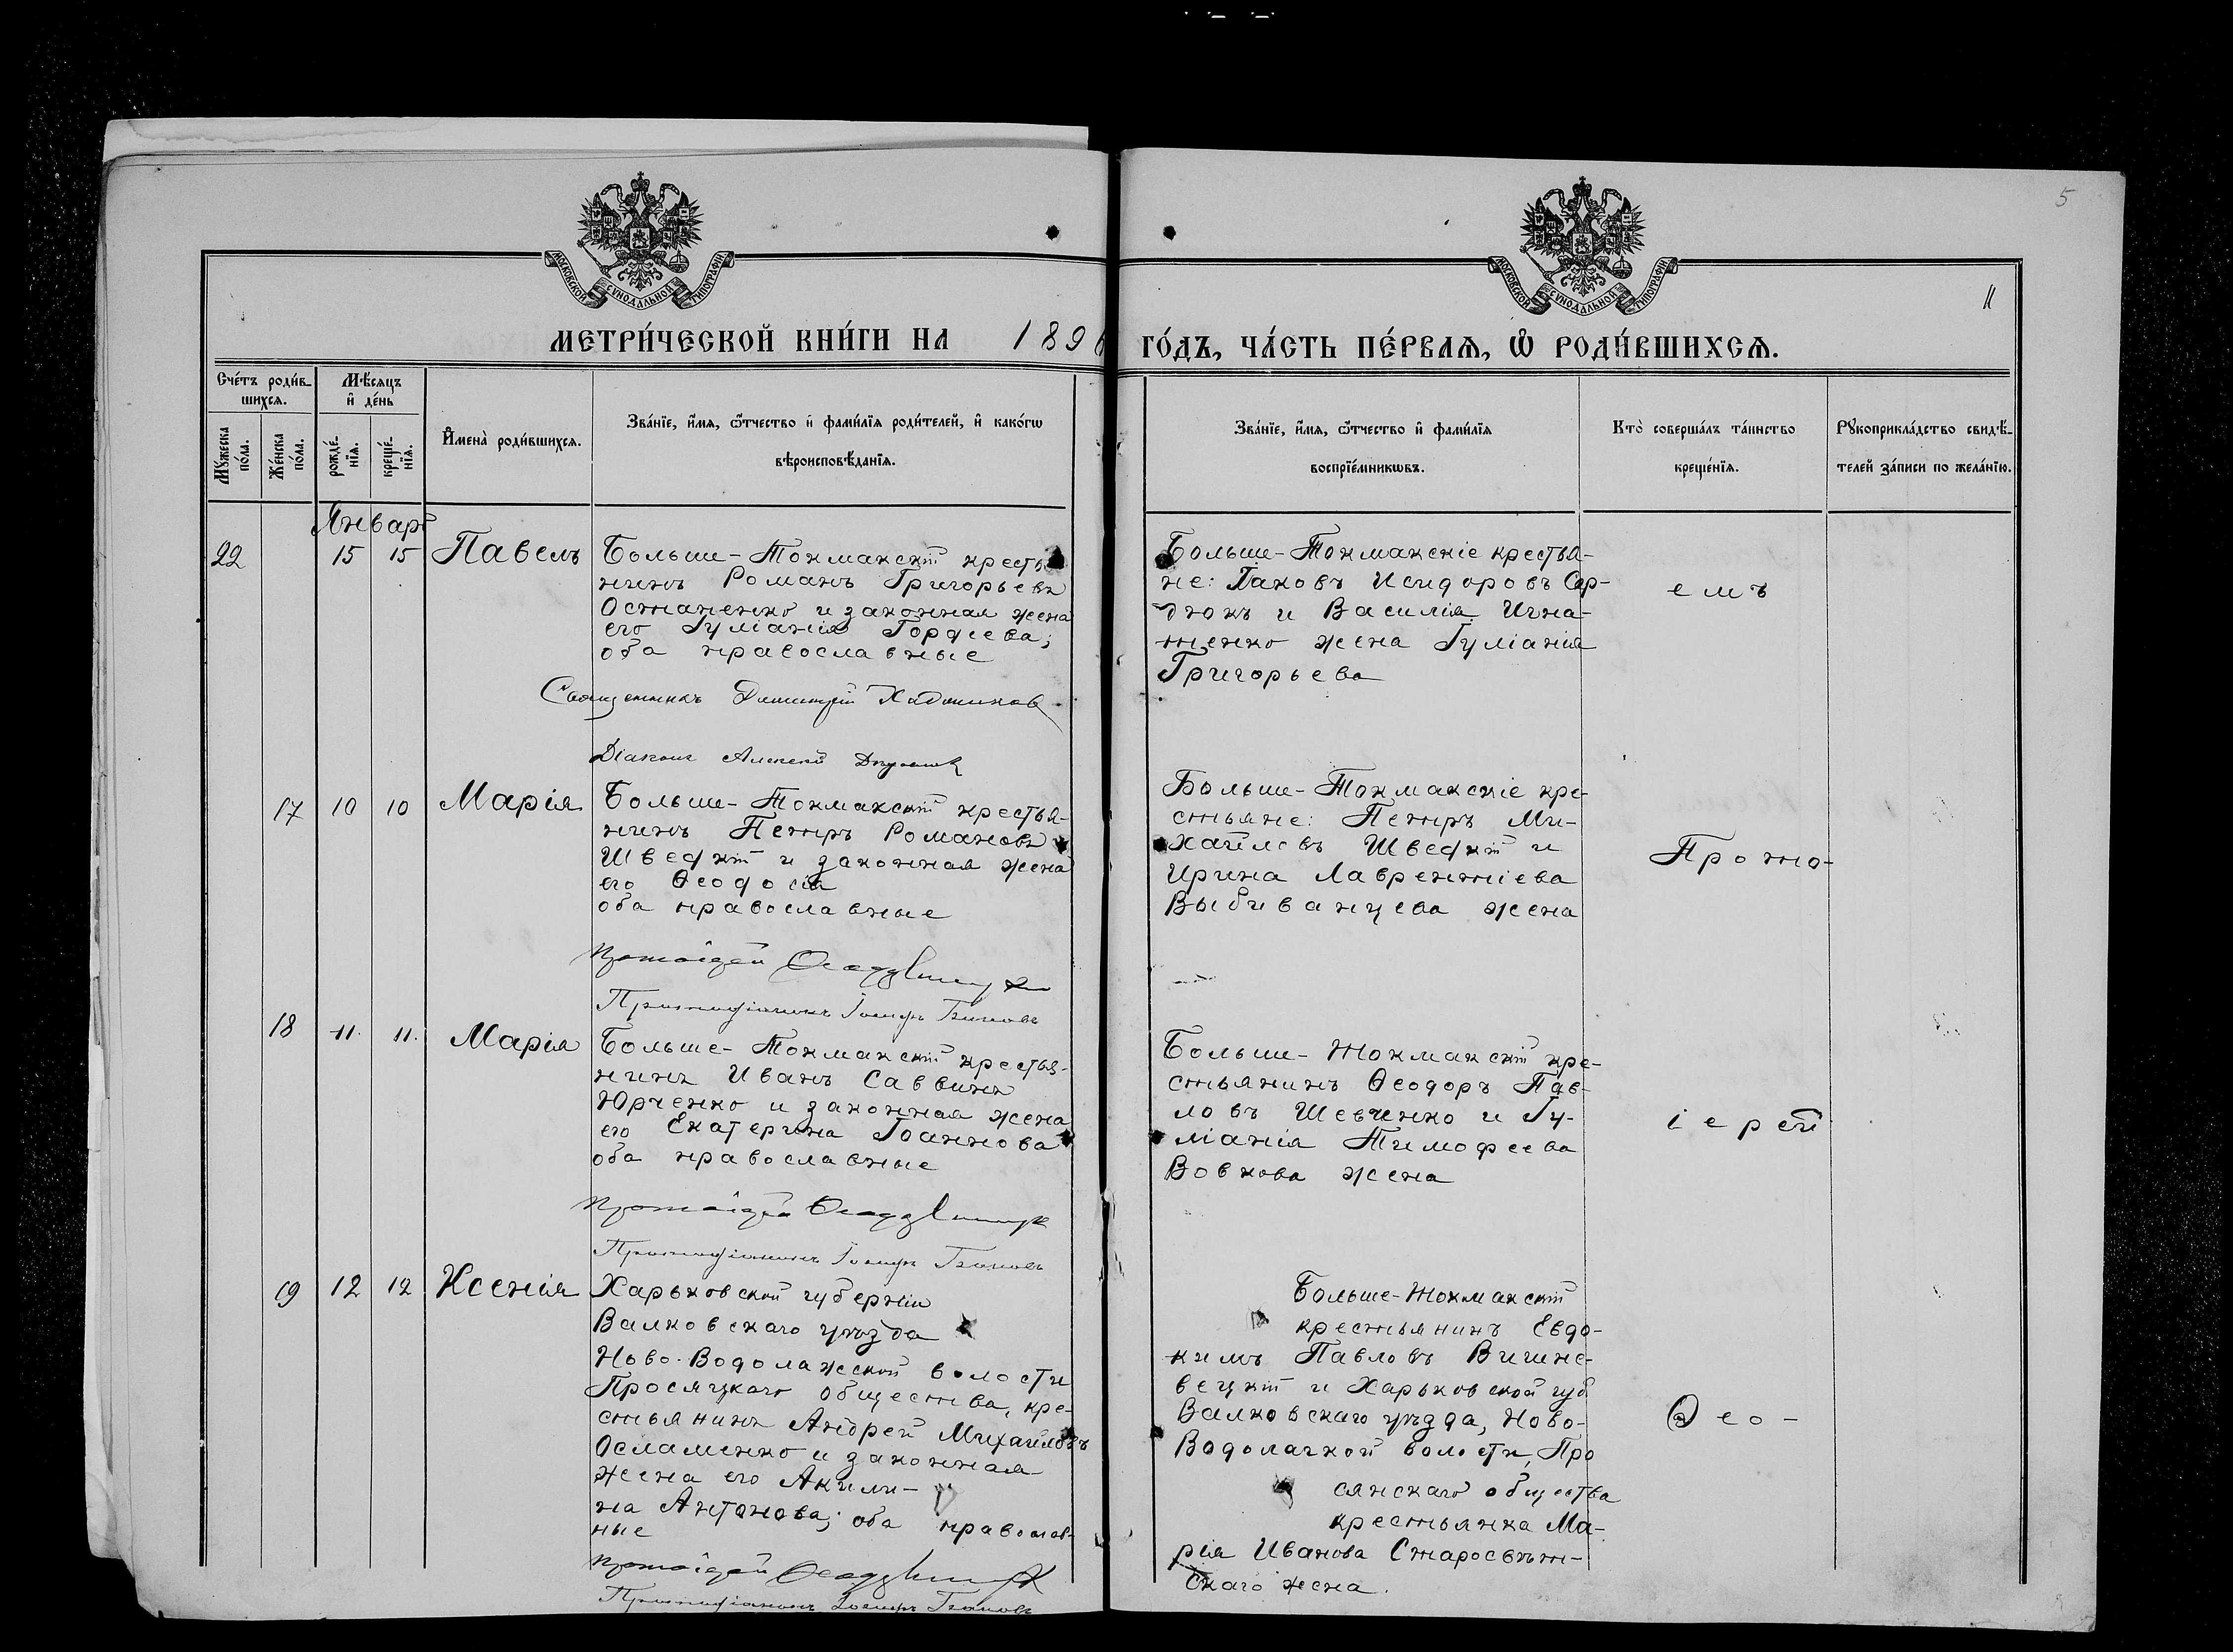 5
11
МОСКОВСКОЙ СѴНОДАЛЬНОЙ ТИПОГРАФІИ
МОСКОВСКОЙ СѴНОДАЛЬНОЙ ТИПОГРАФІИ
МЕТРИ́ЧЕСКОЙ КНИ́ГИ НА 1896
ГО́ДЪ, ЧА́СТЬ ПЕ́РВАѦ, Ѽ РОДИ́ВШИХСѦ.
Сче́тъ роди́в-
шихсѧ.
Мѣ́сѧцъ
и҆ де́нь
Мꙋ́жеска
по́ла.
Же́нска
по́ла.
рожде́-
нїѧ.
креще́-
нїѧ.
И҆мена̀ роди́вшихсѧ.
Зва́нїе, и҆́мѧ, ѿ́чество и҆ фами́лїѧ роди́телей, и҆ како́гѡ
вѣроисповѣ́данїѧ.
Зва́нїе, и҆́мѧ, ѿ́чество и҆ фами́лїѧ
воспрїе́мникѡвъ.
Кто̀ соверша́лъ та́инство
креще́нїѧ.
Рꙋкоприкла́дство свидѣ́-
телей за́писи по жела́нїю.
Январь
22 15 15 Павелъ
Больше-Токмакскій крестья
нинъ Романъ Григорьевъ
Остапенко и законная жена
его Іуліанія Гордеева;
оба православные
Священникъ Димитрій
Діаконъ Алексей
Больше-Токмакскіе крестья-
не: Іаковъ Исидоровъ Сер-
дюкъ и Василія Игна-
тенко жена Іуліанія
Григорьева
емъ
17 10 10 Марія
Больше-Токмакскій крестья-
нинъ Петръ Романовъ
Шведкій и законная жена
его Ѳеодосія
оба православные
Протоіерей
Протодіаконъ Іосифъ
Больше-Токмакскіе кре-
стьяне: Петръ Ми-
хайловъ Шведкій и
Ирина Лаврентіева
Выбиванцева жена
Прото-
18 11. 11. Марія
Больше-Токмакскій крестья-
нинъ Иванъ Саввинъ
Юрченко и законная жена
его Екатерина Іоаннова
оба православные
Протоіерей
Протодіаконъ Іосифъ
Больше-Токмакскій кре-
стьянинъ Ѳеодоръ Пав-
ловъ Шевченко и Іу-
ліанія Тимофеева
Вовкова жена
іерей
19 12 12 Ксенія
Харьковской губерніи
Валковскаго уѣзда
Ново-Водолажской волости
Просяцкаго общества, кре-
стьянинъ Андрей Михайловъ
Осламенко и законная
жена его Акили-
на Антонова; оба православ-
ные
Протоіерей
Протодіаконъ Іосифъ
Больше-Токмакскій
крестьянинъ Евдо-
кимъ Павловъ Вишне-
вецкій и Харьковской губ.
Валковскаго уѣзда, Ново-
Водолачкой волости, Про
сянскаго общества
крестьянка Ма-
рія Иванова Старосвѣт-
скаго жена.
Ѳео-